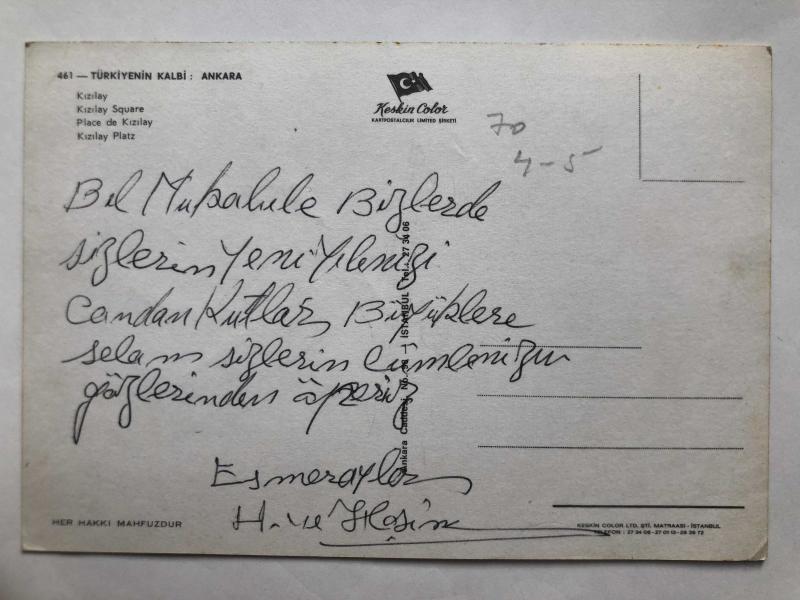 461 — TÜRKİYENİN KALBİ : ANKARA
Kızılay
Kızılay Square
Place de Kızılay
Kızılay Platz
Keskin Color
KARTPOSTALCILIK LİMİTED ŞİRKETİ
70
4-5
Bil Mukabele Bizlerde
sizlerin Yeni Yılınızı
Candan Kutlar, Büyüklere
selam sizlerin Cümlenizin
gözlerinden öperiz
Esmeraylar
H. ve
Ankara Caddesi No. - İSTANBUL Tel. 27 34 06
HER HAKKI MAHFUZDUR
KESKİN COLOR LTD. ŞTİ. MATBAASI - İSTANBUL
TELEFON : 27 34 06 - 27 01 13 - 28 36 72